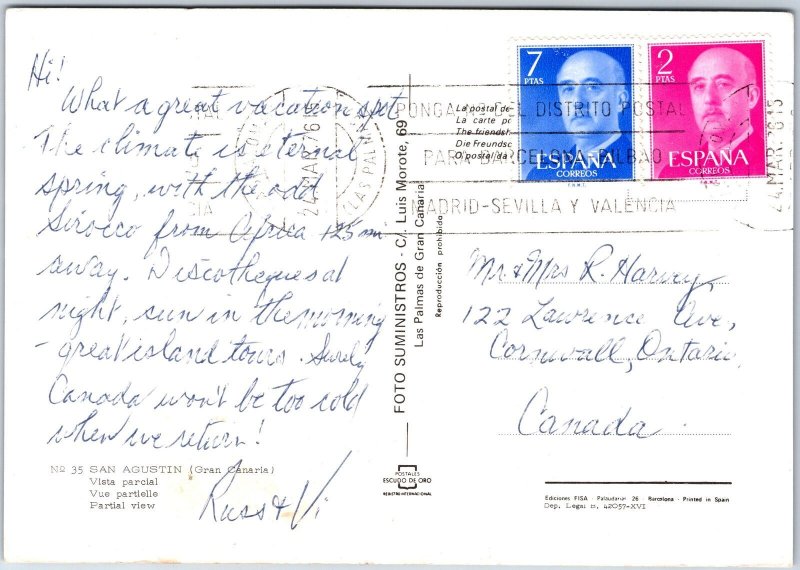 Hi!
What a great vacation spot
The climate is eternal
spring, with the odd
Sirocco from Africa 125 mi
away. Discotheques at
night, sun in the morning
- great island tours. Surely
Canada won't be too cold
when we return!
Russ & Vi
Nº 35 SAN AGUSTIN (Gran Canaria)
Vista parcial
Vue partielle
Partial view
FOTO SUMINISTROS - C/. Luis Morote, 69
Las Palmas de Gran Canaria
Reproducción prohibida
POSTALES
ESCUDO DE ORO
REGISTRO INTERNACIONAL
La postal de
La carte po
The friendsh
Die Freundsc
O postal da
7
PTAS
ESPAÑA
CORREOS
F.N.M.T.
2
PTAS
ESPAÑA
CORREOS
F.N.M.T.
PONGA DEL DISTRITO POSTAL
PARA BARCELONA-BILBAO
MADRID-SEVILLA Y VALENCIA
LAS PALMAS
24 MAR 76 15
Mr. & Mrs R. Harvey,
122 Lawrence Ave,
Cornwall, Ontario,
Canada.
Ediciones FISA - Palaudarias 26 - Barcelona - Printed in Spain
Dep. Legal B, 42057-XVI